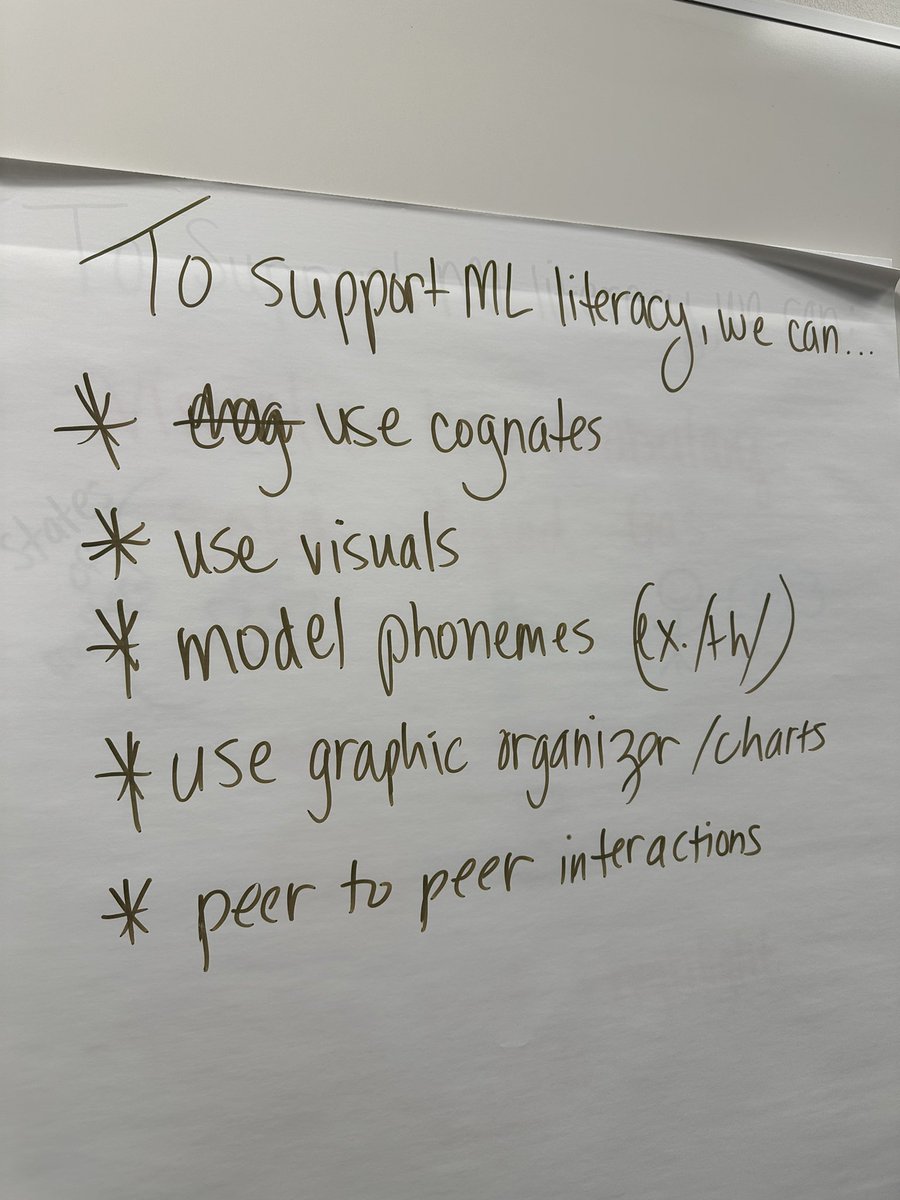 To support ML literacy, we can...
* use cognates
* use visuals
* model phonemes (ex. /th/)
* use graphic organizer/charts
* peer to peer interactions